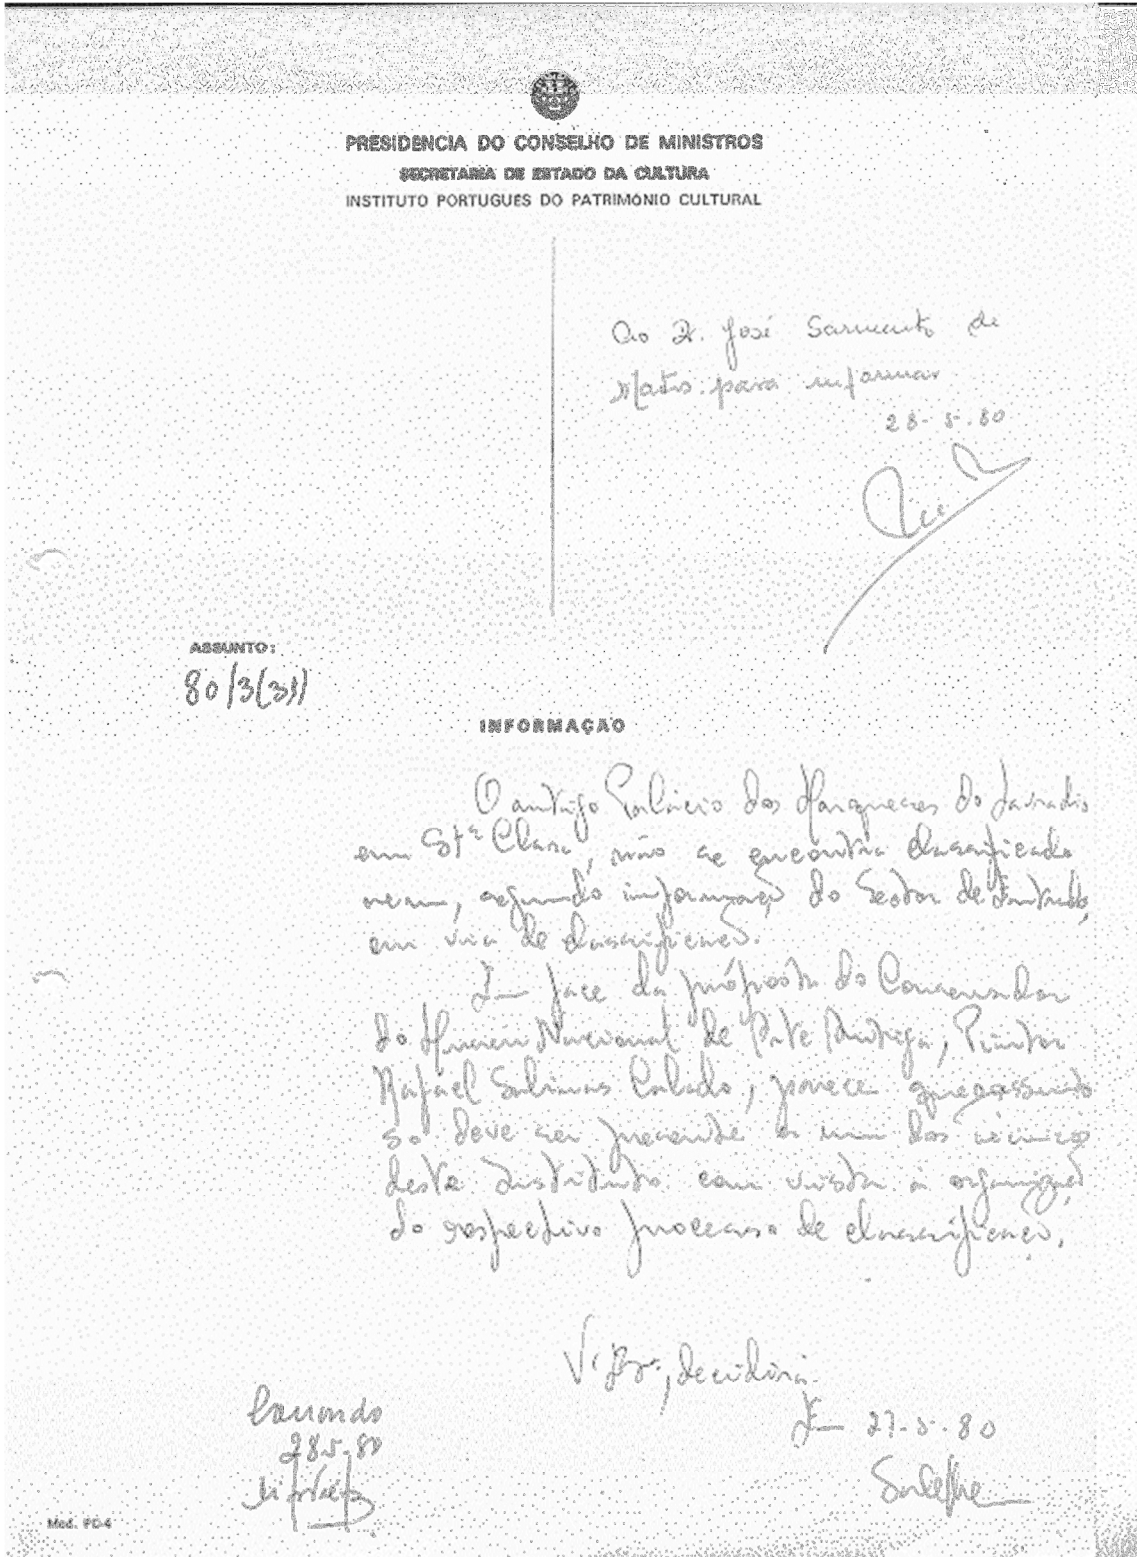 PRESIDENCIA DO CONSELHO DE MINISTROS
SECRETARIA DE ESTADO DA CULTURA
INSTITUTO PORTUGUÊS DO PATRIMÓNIO CULTURAL
Ao Dr. José Sarmento de
Matos para informar
28-5-80
ASSUNTO:
80/3(31)
INFORMAÇÃO
O antigo Palácio dos Marqueses do Lavradio
em Stª Clara, não se encontra classificado
nem, segundo informação do Sector de Entrada,
em via de classificação.
Em face da proposta do Conservador
do Museu Nacional de Arte Antiga, Pintor
Rafael Salinas Calado, parece que o assunto
só deve ser presente a um dos técnicos
deste Instituto com vista à organização
do respectivo processo de classificação.
V. Exª, decidirá.
Concordo
Em 27-5-80
28.5.80
Mod. PC-4